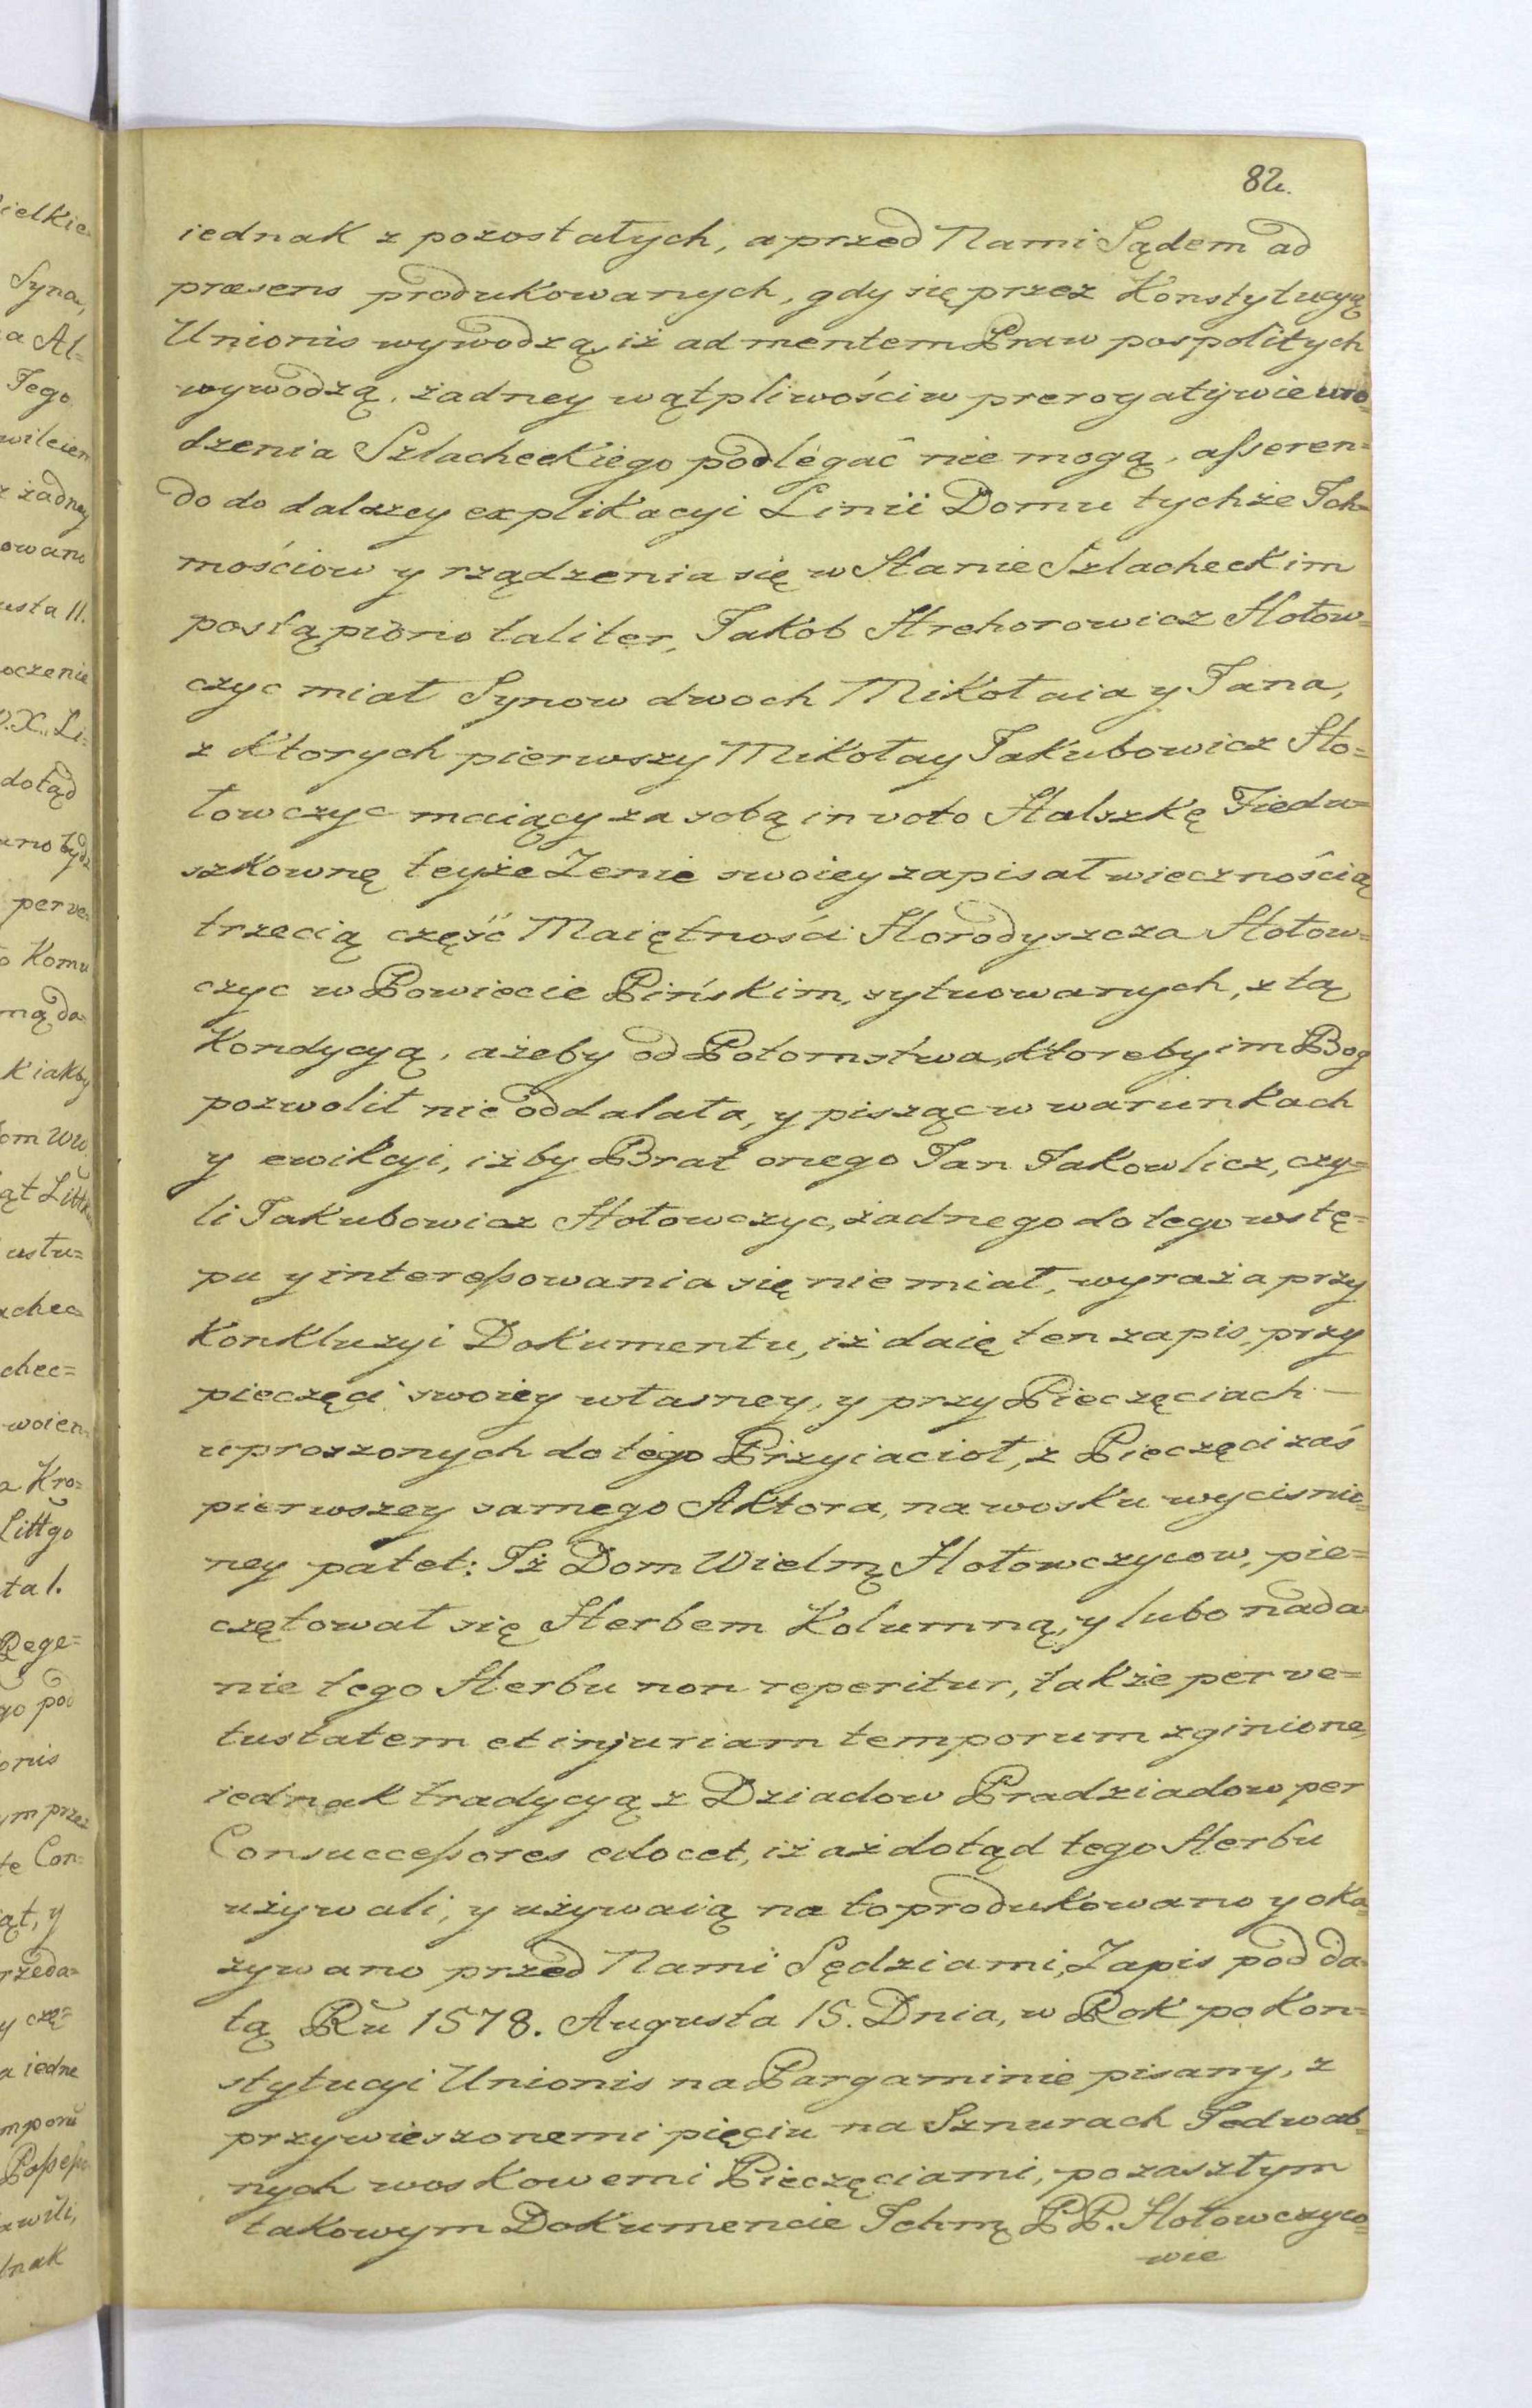 82.
iednak z pozostałych, a przed Nami Sądem ad
præsens produkowanych, gdy się przez Konstytucyą
Unionis wywodzą, iż ad mentem Praw pospolitych
wywodzą, żadney wątpliwości w prerogatywie uro=
dzenia Szlacheckiego podlegać nie mogą, asseren=
do do dalszey explikacyi Linii Domu tychże Ich=
mościow y rządzenia się w Stanie Szlacheckim
postąpiono taliter, Jakób Hrehorowicz Hołow=
czyc miał Synow dwoch Mikołaia y Jana,
z Ktorych pierwszy Mikołay Jakubowicz Ho=
łowczyc maiący za sobą in voto Halszkę Fiedu=
szkownę teyże Żenie swoiey zapisał wiecznością
trzecią część Maiętności Horodyszcza Hołow=
czyc w Powiecie Pińskim, sytuowanych, z tą
Kondycyą, ażeby od Potomstwa, Ktoreby im Bog
pozwolił nie oddalała, y pisząc w warunkach
y ewikcyi, iżby Brat onego Jan Jakowlicz, czy=
li Jakubowicz Hołowczyc, żadnego do tego wstę=
pu y interessowania się nie miał, wyraża przy
Konkluzyi Dokumentu, iż daię ten zapis, przy
pieczęci swoiey własney, y przy Pieczęciach —
uproszonych do tego Przyiacioł, z Pieczęci zaś
pierwszey samego Aktora, na wosku wycisnio=
ney patet: Iż Dom Wielmą Hołowczycow, pie=
czętował się Herbem Kolumną, y lubo nada
nie tego Herbu non reperitur, także per ve=
tustatem et injuriam temporum zginione,
iednak tradycyą z Dziadow Pradziadow per
Consuccessores edocet, iż aż dotąd tego Herbu
używali, y używaią na to produkowano y oka=
zywano przed Nami Sędziami, Zapis pod da=
tą Rŭ 1578. Augusta 15. Dnia, w Rok po Kon=
stytucyi Unionis na Pargaminie pisany, z
przywieszonemi pięciu na Sznurach Jedwab=
nych woskowemi Pieczęciami, po zaszłym
takowym Dokumencie Ichmą PP. Hołowczyco=
wie